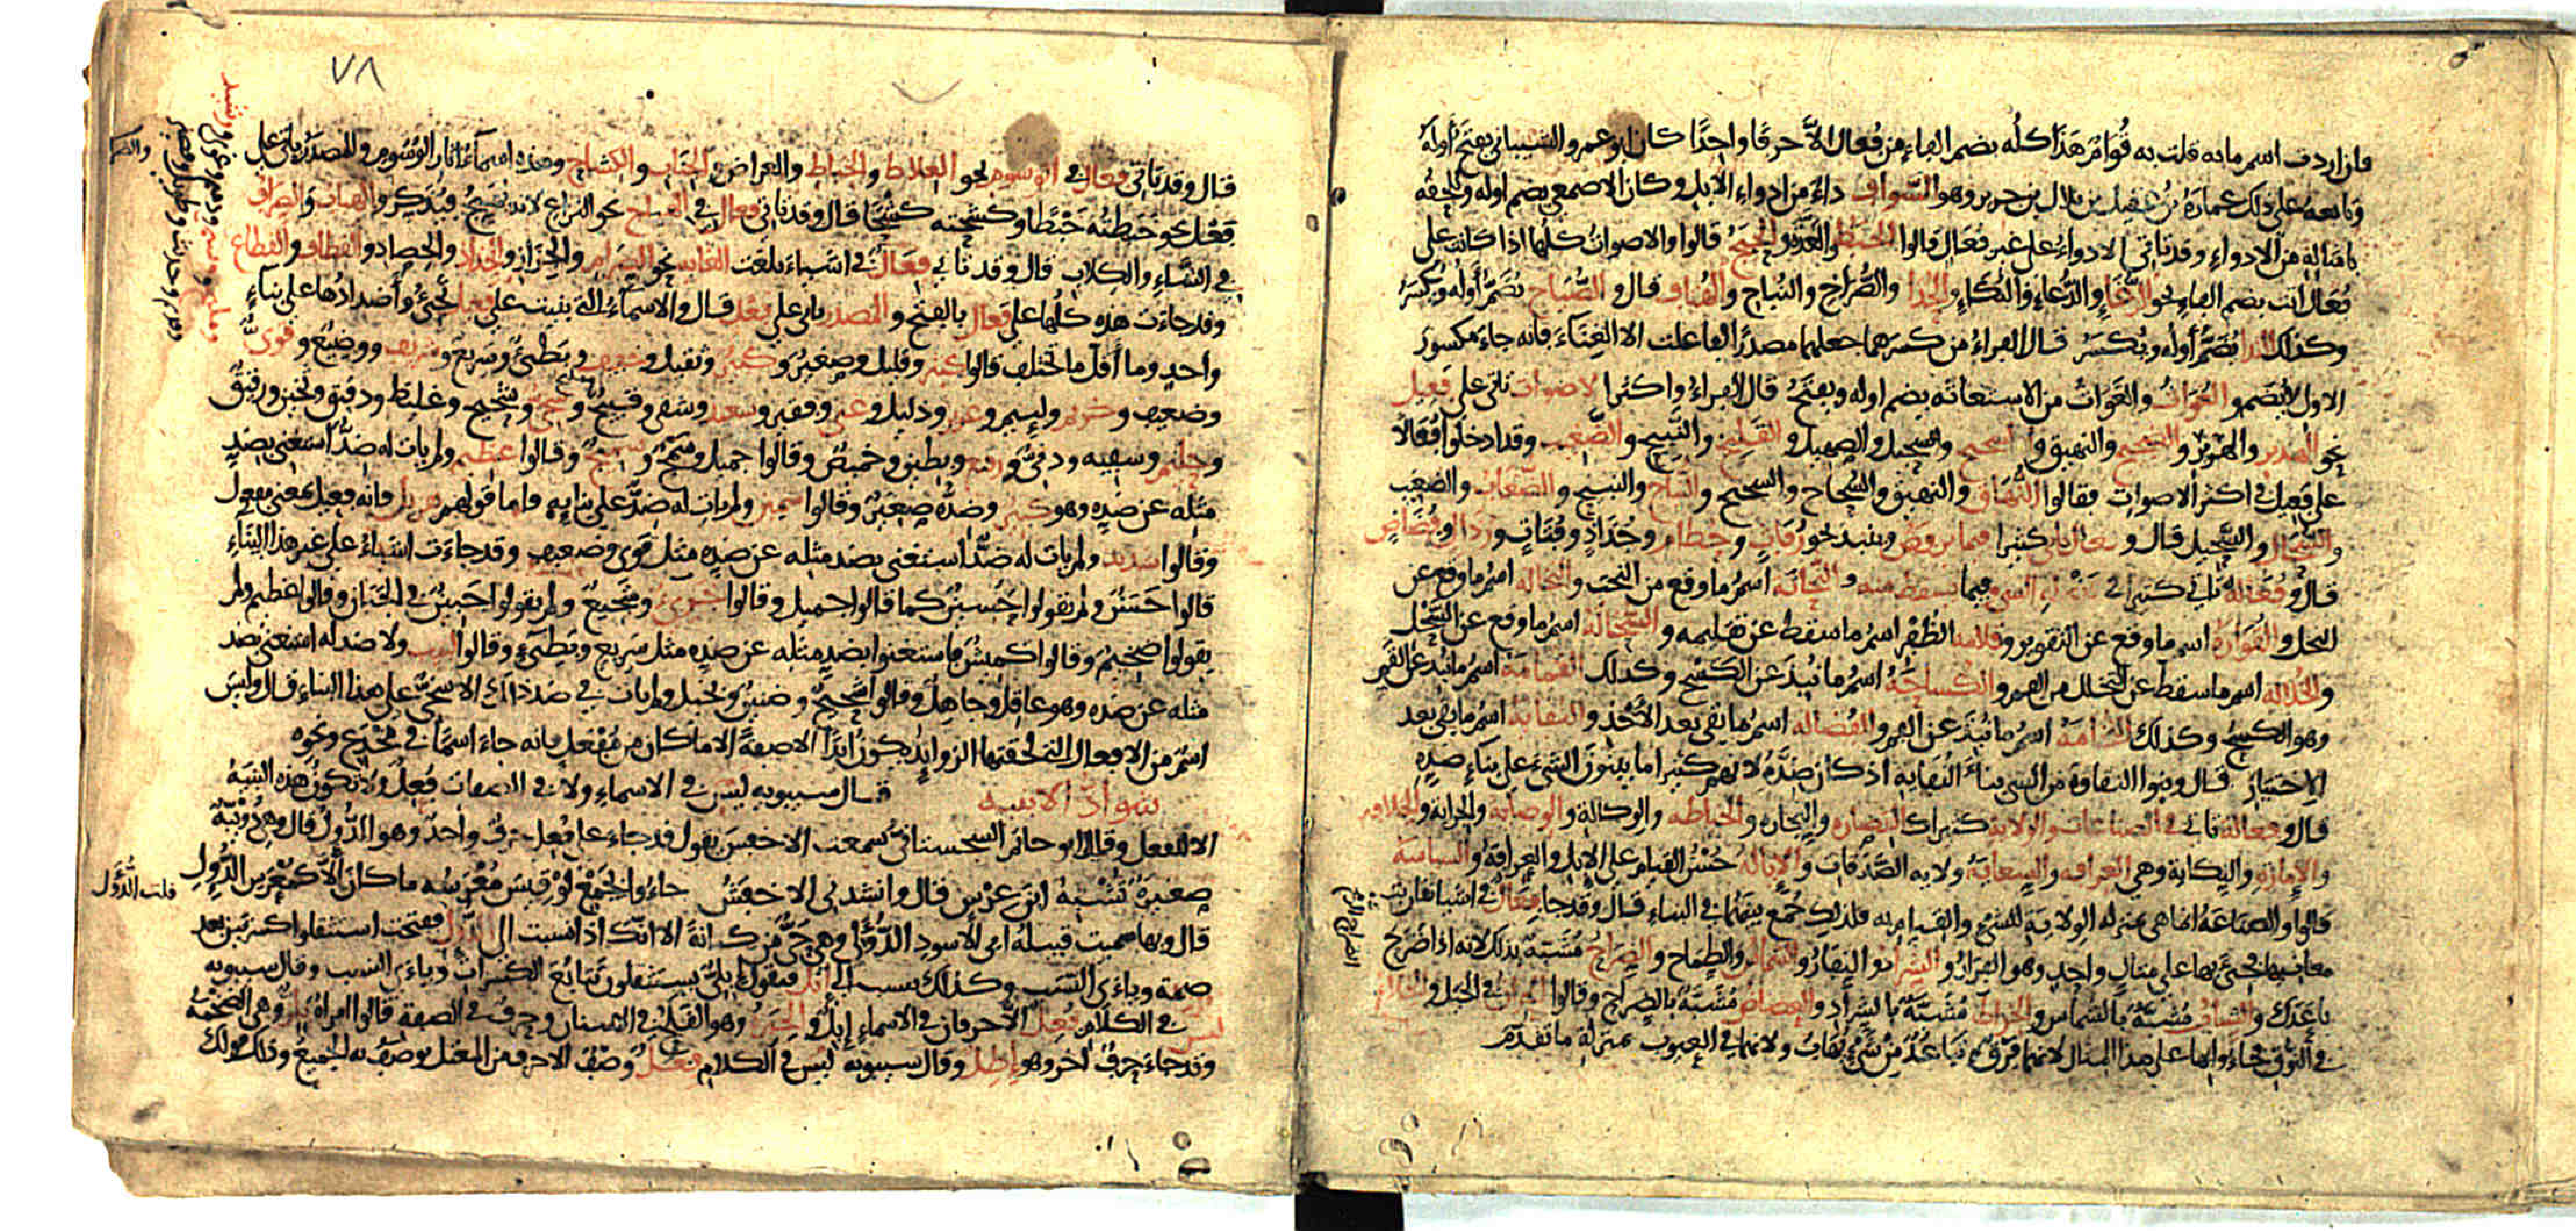 فان اردت اسم ما به قلت به قُوام هذا كله بضم الفاء من فُعال الا حرفا واحدا كان ابو عمرو الشيباني يفتح أوله
وتابعه على ذلك عمارة بن عقيل بن بلال بن جرير وهو السواف داء من ادواء الابل وكان الاصمعي يضم اوله ويلحقه
بامثاله من الادواء وقد تاتي الادواء على غير فعال قالوا الحبط والغدة والحبج قالوا والاصوات كلها اذا كانت على
فعال اتت بضم الفاء نحو الرغاء والدعاء والبكاء والحداء والصراخ والنباح والهتاف قال والصياح يضم أوله ويكسر
وكذلك النداء يضم أوله ويكسر قال الفراء من كسرهما جعلهما مصدرا لفاعلت الا الغناء فانه جاء مكسور
الاول لا يضم والغواث والغواث من الاستغاثة بضم اوله وبفتح قال الفراء واكثر الاصوات تاتي على فعيل
نحو الهدير والهرير والضجيج والنهيق والشحيج والسحيل والصهيل والقليخ والنبيح والضغيب وقد ادخلوا فعالا
على فعيل في اكثر الاصوات فقالوا النهاق والنهيق والشحاج والشحيج والنباح والنبيح والضغاب والضغيب
والسحال والسحيل قال وفعال ياتي كثيرا فيما يرفض وينبذ نحو رفات وحطام وجذاذ وفتات ورذال وفضاض
قال وفعالة تاتي كثيرا في فضلة الشي وفيما يسقط منه والنحاتة اسم ما وقع من النحت والنخالة اسم ما وقع عن
النخل والقوارة اسم ما وقع عن التقوير وقلامة الظفر اسم ما سقط عن تقليمه والسحالة اسم ما وقع عن السحل
والخلالة اسم ما سقط عن التخلل من الفم والكساحة اسم ما نبذ عن الكسح وكذلك القمامة اسم ما نبذ عن القم
وهو الكسح وكذلك اسم ما نبذ عن الفم والفضالة اسم ما بقي بعد الاخذ والنفاية اسم ما بقي بعد
الاختيار قال وبنوا النقاوة من الشي بناء النفاية اذ كان ضده لانهم كثيرا ما يبنون الشيء على بناء ضده
قال وفعالة تاتي في الصناعات والولاية كثيرا كالقصارة والنجارة والخياطة والوكالة والوصاية والجراية والخلافة
والامارة والنكابة وهي العرافة والسعاية ولاية الصدقات والابالة حسن القيام على الابل والعرافة والسياسة
قالوا والصناعة انما هي بمنزلة الولاية للشيء والقيام به فلذلك جمع بينهما في البناء قال وقد جاء فعال في اشيا تقاربت
معانيها فجيء بها على مثال واحد وهو الفرار والشراد والنفار والشماس والطماح والضراح مشبه بذلك لانه اذا ضرح
باعدك والشباب مشبه بالشماس والخراط مشبه بالشراد والعضاض مشبه بالضراح وقالوا الحران في الخيل والخلاء
في النوق فجاؤا بهما على هذا المثال لانهما فرق وتباعد من شيء يهاب ولانهما في العيوب بمنزلة ما تقدم
الضراح الرمح
٧٨
قال وقد ياتي فعال في الوسوم نحو العلاط والخباط والعراض والجناب والكشاح وهذه اسماء آثار الوسوم والمصدر ياتي على
فعل نحو خبطته خبطا وكشحته كشحا قال وقد ياتي فعال في الهياج نحو النزاع لانه يهيج فيذكر والهباب والصراف
في الشاء والكلاب قال وقد تاتي فعال في اشياء بلغت الغاية نحو الصرام والجزاز والجذاذ والحصاد والقطاف والقطاع
وقد جاءت هذه كلها على فعال بالفتح والمصدر ياتي على فعل قال والاسماء التي بنيت على فعيل تجيء وأضدادها على بناء
واحد وما أقل ما تختلف قالوا كثير وقليل وصغير وكبير وثقيل وخفيف وبطيء وسريع وشريف ووضيع وقوي
وضعيف وكريم ولئيم وعزيز وذليل وغني وفقير وسعيد وشقي وقبيح وسخي وشحيح وغليظ ودقيق وثخين ورقيق
وحليم وسفيه ودني ورفيع وبطين وخميص وقالوا جميل وسمج وسميج وقالوا عظيم ولم يات له ضد استغني بضد
مثله عن ضده وهو كبير وضده صغير وقالوا سمين ولم يات له ضد على بنايه فاما قولهم هزيل فانه فعيل بمعنى مفعول
وقالوا شديد ولم يات له ضد استغنى بضد مثله عن ضده مثل قوي وضعيف وقد جاءت اشياء على غير هذا البناء
قالوا حسن ولم يقولوا حسين كما قالوا جميل وقالوا جريء وشجيع ولم يقولوا جبين في الجبان وقالوا عظيم ولم
يقولوا ضخيم وقالوا كميش فاستغنوا بضد مثله عن ضده مثل سريع وبطيء وقالوا لبيب ولا ضد له استغنى بضد
مثله عن ضده وهو عاقل وجاهل وقالوا شحيح وضنين وبخيل ولم يات في ضد ذلك الا سخي على هذا البناء قال وليس
اسم من الافعال التي لحقتها الزوايد يكون ابدا الا صفة الا ما كان من مفعل فانه جاء اسما في مخدع ونحوه
شواذ الابنية قال سيبويه ليس في الاسماء ولا في الصفات فعل ولا تكون هذه البنية
الا للفعل وقال ابو حاتم السجستاني سمعت الاخفش يقول قد جاء على فعل حرف واحد وهو الدئل قال وهي دويبة
صغيرة تشبه ابن عرس قال وانشدني الاخفش جاءوا بجمع لو قيس معرسه ما كان الا كمعرس الدئل
قال وبها سميت قبيلة ابي الاسود الدؤلي وهي حي من كنانة الا انك اذا نسبت الى الدئل فتحت استثقلوا كسرتين بعد
ضمة وياءي النسب وكذلك ينسب الى ابل فيقول ابلي يستثقلون تتابع الكسرات وياءي النسب وقال سيبويه
ليس في الكلام فعل الا حرفان في الاسماء ابل والحبر وهو القلح في الاسنان وحرف في الصفة قالوا امراة بلز وهي الضخمة
وقد جاء حرف آخر وهو اطل وقال سيبويه ليس في الكلام فعل وصف الا حرف من المعتل يوصف به الجميع وذلك قولك
قلت الدؤل